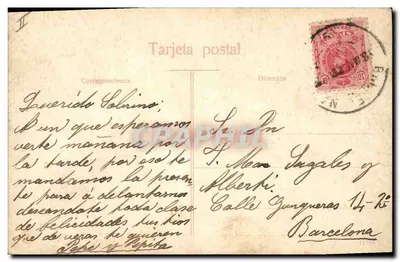 II
Tarjeta postal
Correspondencia
Dirección
Querido Sobrino;
A un que esperamos
verte mañana por
la tarde, por eso te
mandamos la presen
te para á delantarnos
deseandote toda clase
de felicidades, tus tios
que de veras te quieren
Pepe y Pepita
S. Dn
J. Mas Sagales y
Alberti.
Calle Junqueras 14-
Barcelona